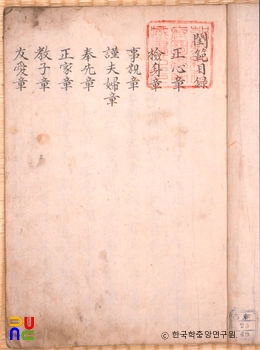 閨範目録
正心章
檢身章
事親章
謹夫婦章
奉先章
正家章
教子章
友愛章
ⓒ 한국학중앙연구원